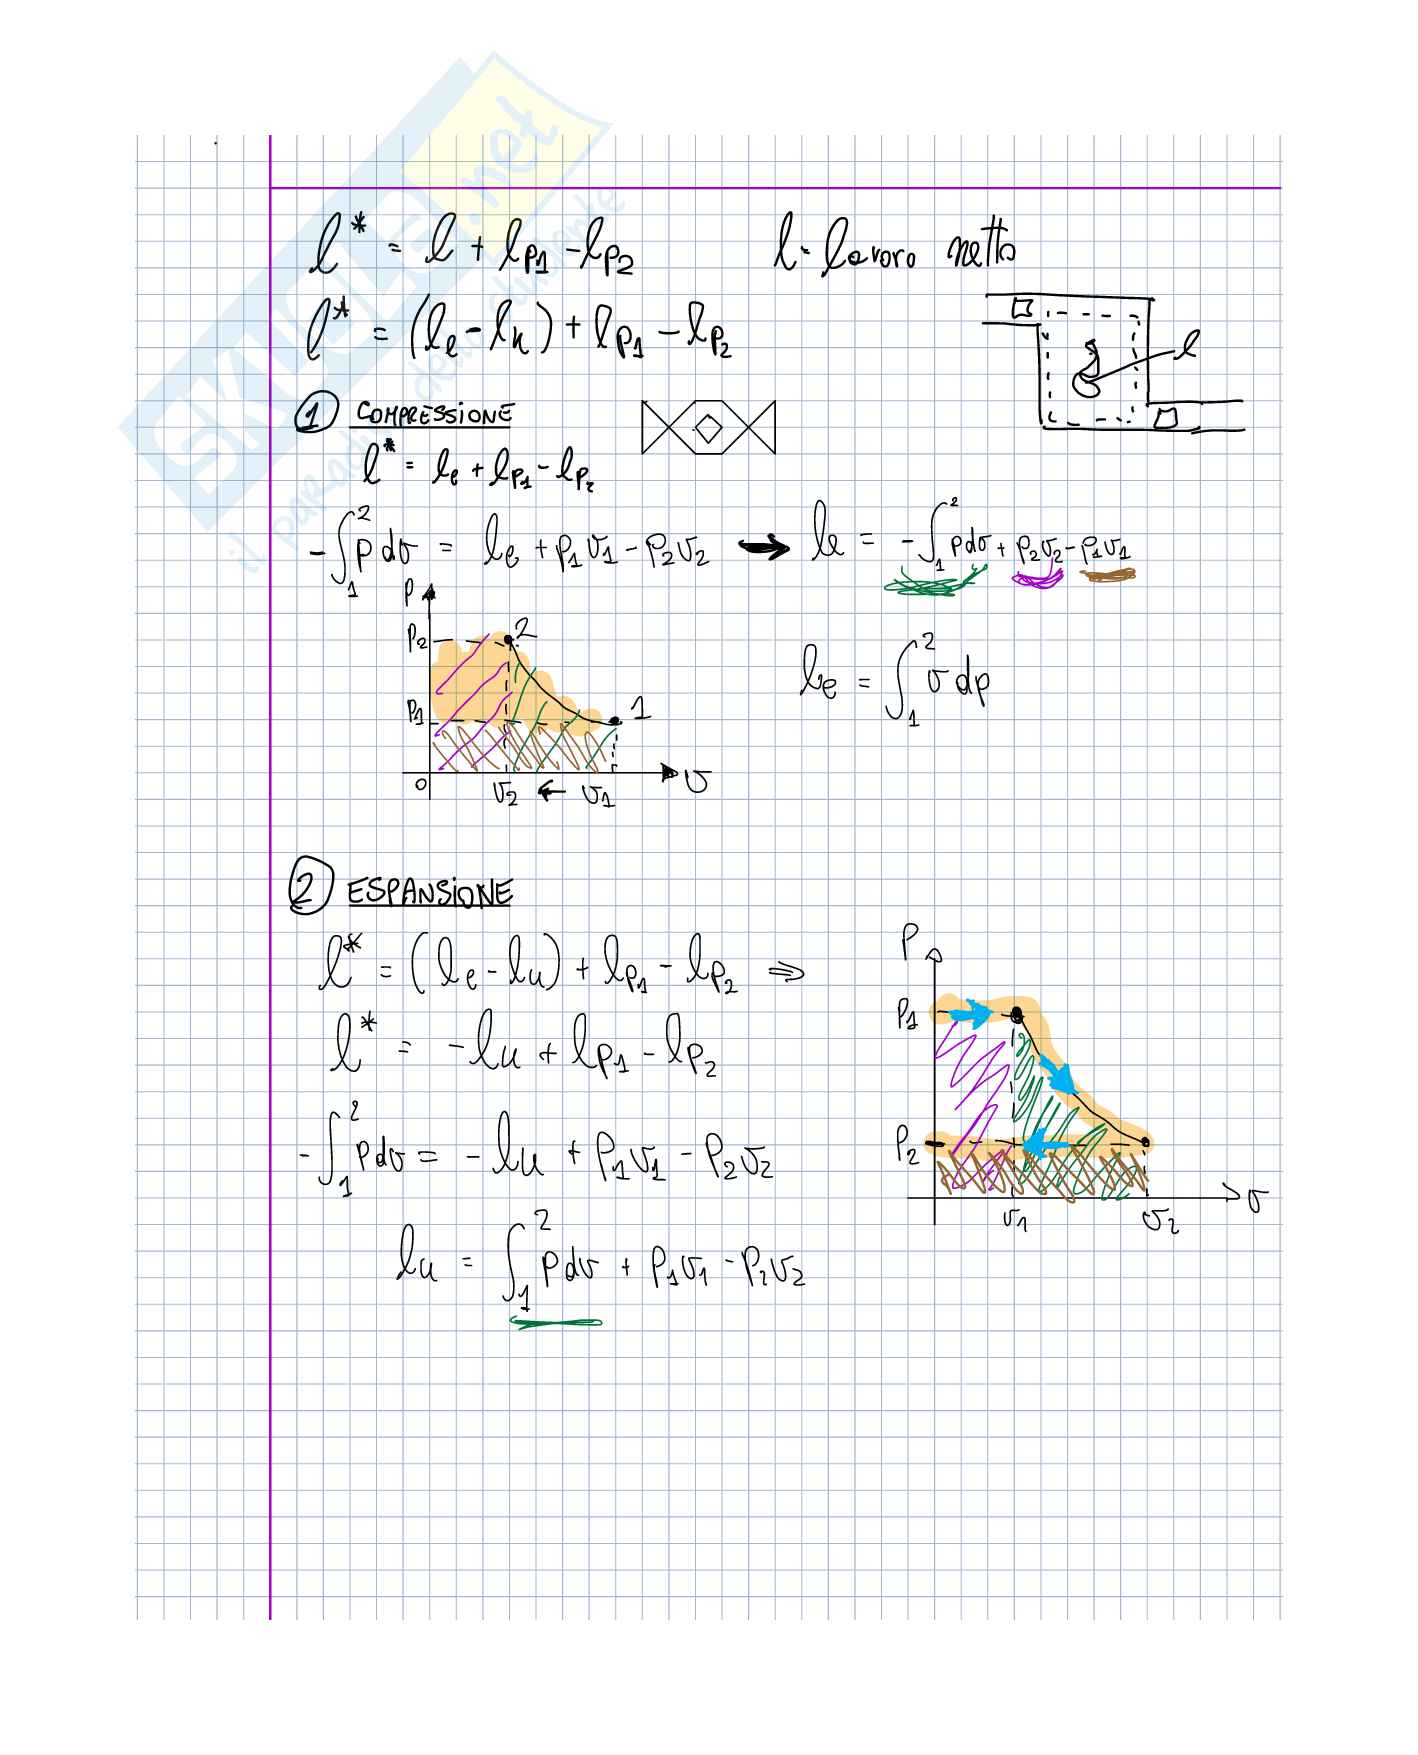 SKUOLA.net
il paradiso dello studente
l* = l + lp1 - lp2
l - lavoro netto
l* = (le - lu) + lp1 - lp2
l
1 COMPRESSIONE
l* = le + lp1 - lp2
-∫₁² p dv = le + p1v1 - p2v2 → le = -∫₁² pdv + p2v2 - p1v1
P
P2
2
P1
1
0
v2 ← v1
v
le = ∫₁² v dp
2 ESPANSIONE
l* = (le - lu) + lp1 - lp2 ⇒
l* = -lu + lp1 - lp2
-∫₁² pdv = -lu + p1v1 - p2v2
lu = ∫₁² pdv + p1v1 - p2v2
P
P1
P2
v1
v2
v